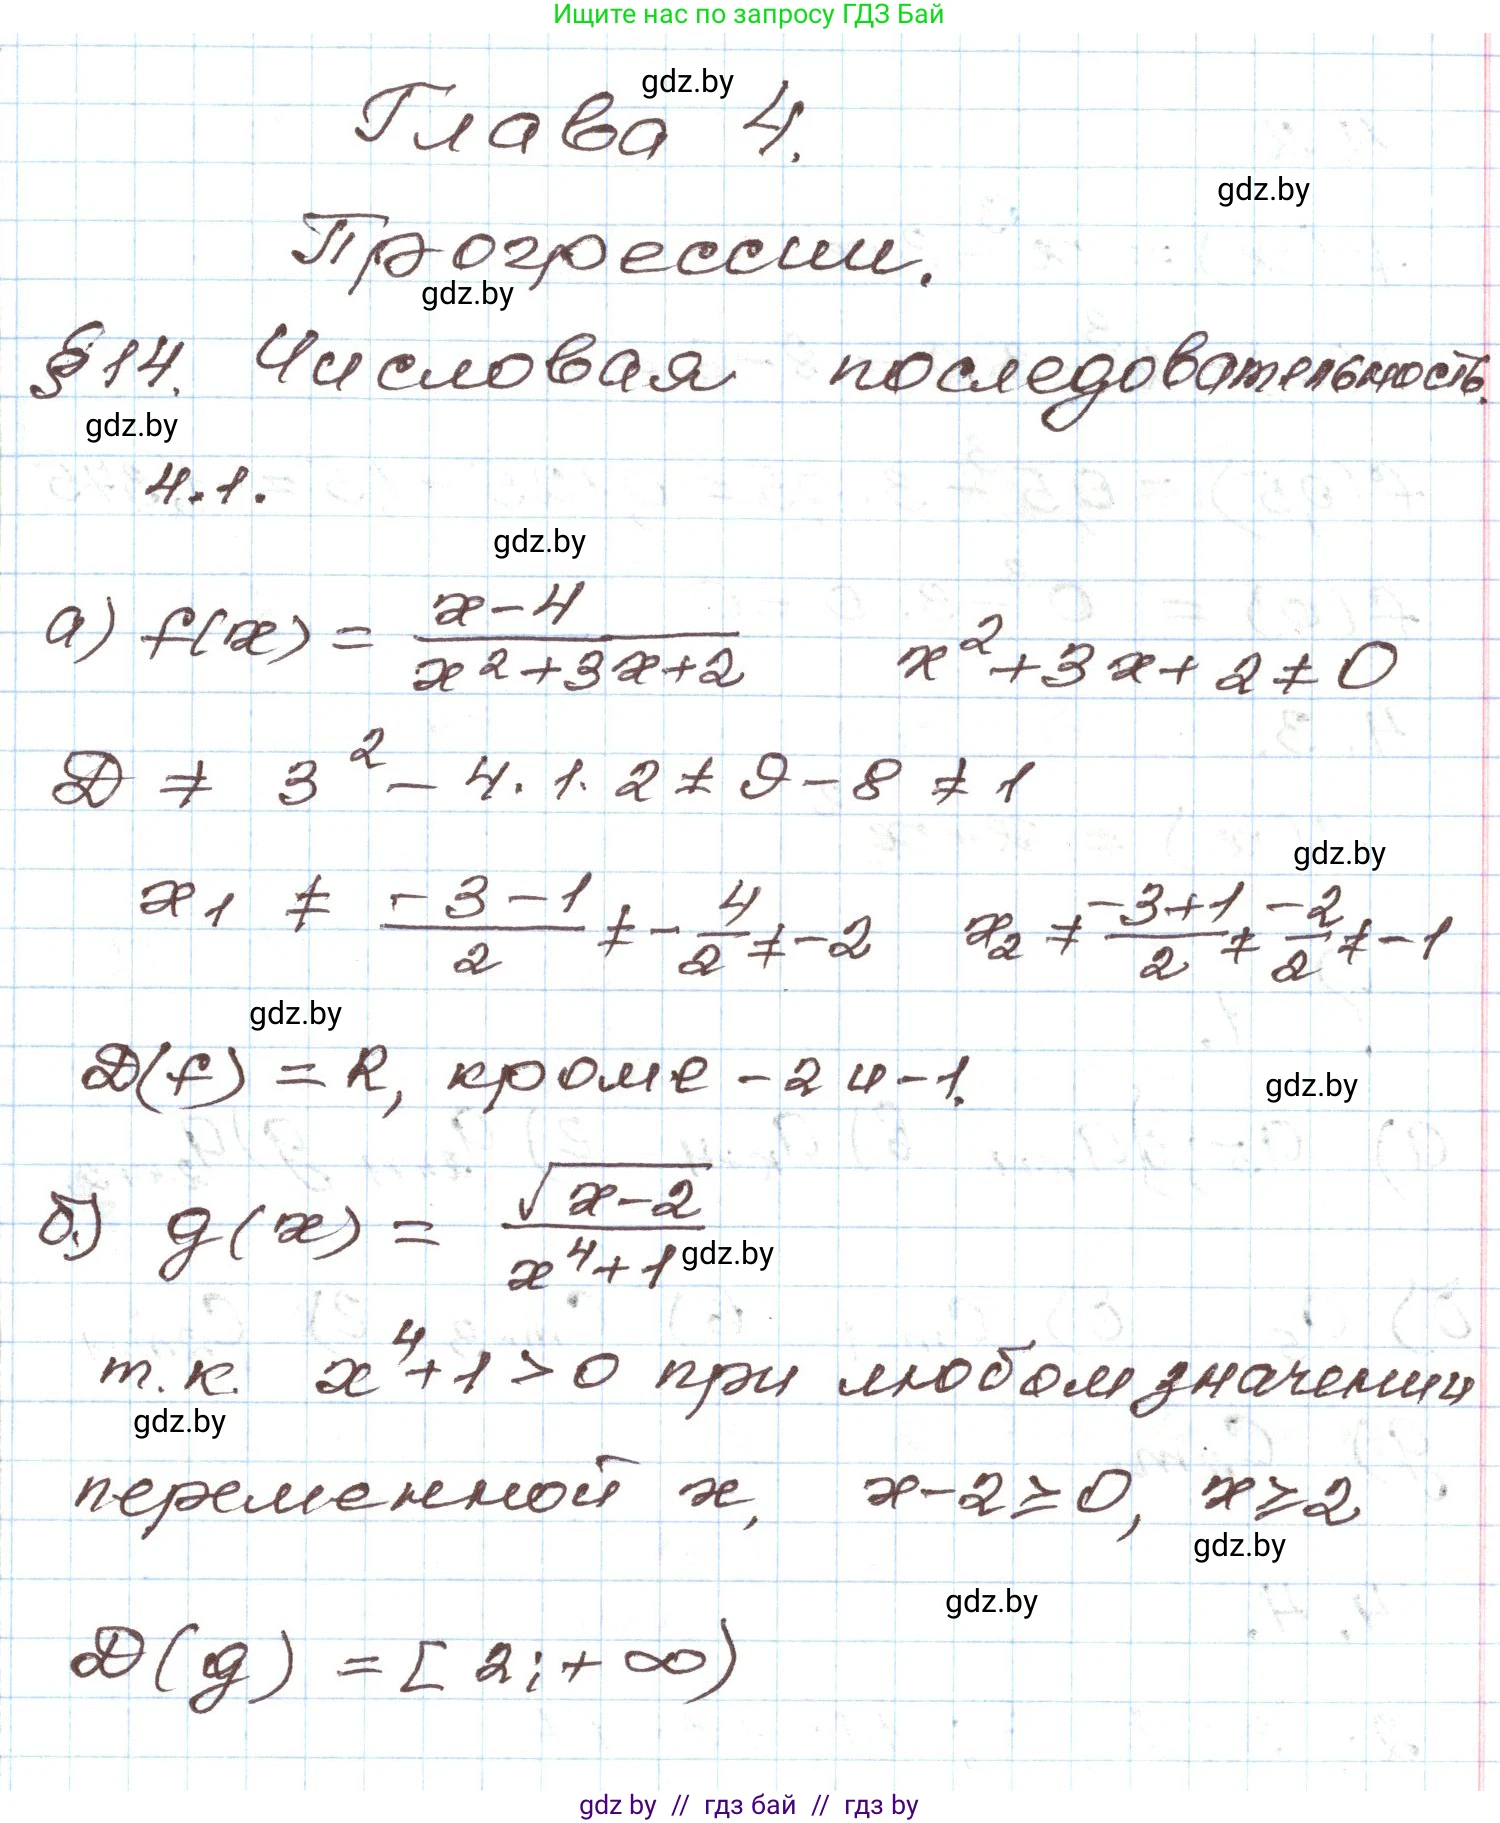 Ищите нас по запросу ГДЗ Бай
gdz.by
Глава 4.
gdz.by
Прогрессии.
gdz.by
§14. Числовая последовательность.
gdz.by
4.1.
gdz.by
а) f(x) = (x-4)/(x²+3x+2)   x²+3x+2≠0
D ≠ 3²-4·1·2≠9-8≠1
gdz.by
x₁ ≠ (-3-1)/2 ≠ -4/2 ≠ -2   x₂ ≠ (-3+1)/2 ≠ -2/2 ≠ -1
gdz.by
D(f) = R, кроме -2 и -1.
gdz.by
б) g(x) = √(x-2)/(x⁴+1)
gdz.by
т.к. x⁴+1>0 при любом значении
gdz.by
переменной x, x-2≥0, x≥2
gdz.by
gdz.by
D(g) = [2;+∞)
gdz by // гдз бай // гдз by